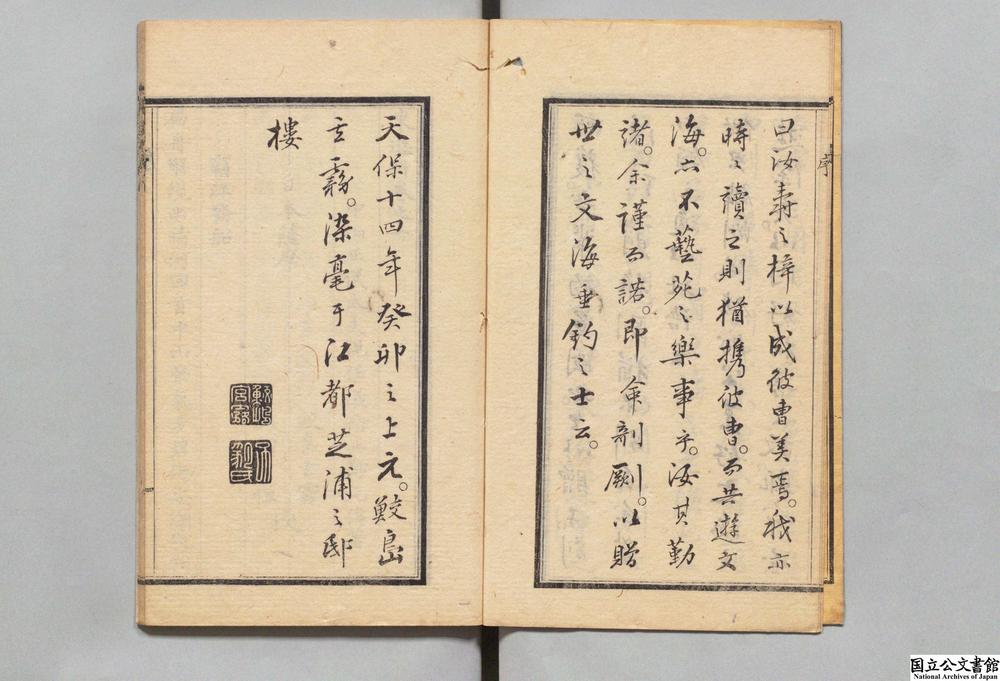 序
曰汝壽之梓以成彼曹美焉。我亦
時々讀之則猶攜彼曹。而共遊文
海。亦不藝苑之樂事乎。汝其勤
諸。余謹而諾。即命剞劂。以贈
世之文海垂釣之士云。
天保十四年癸卯之上元。鮫島
玄霧。染毫于江都芝浦之邸
樓
国立公文書館
National Archives of Japan